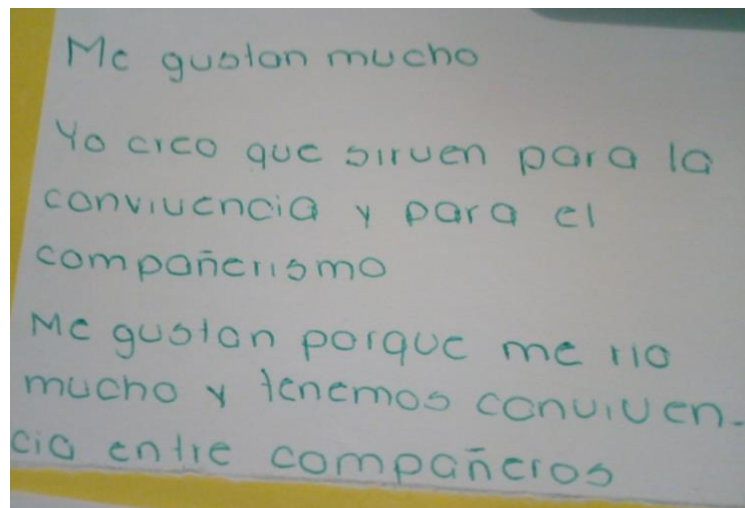 Me gustan mucho
Yo creo que sirven para la
convivencia y para el
compañerismo
Me gustan porque me rio
mucho y tenemos conviven-
cia entre compañeros